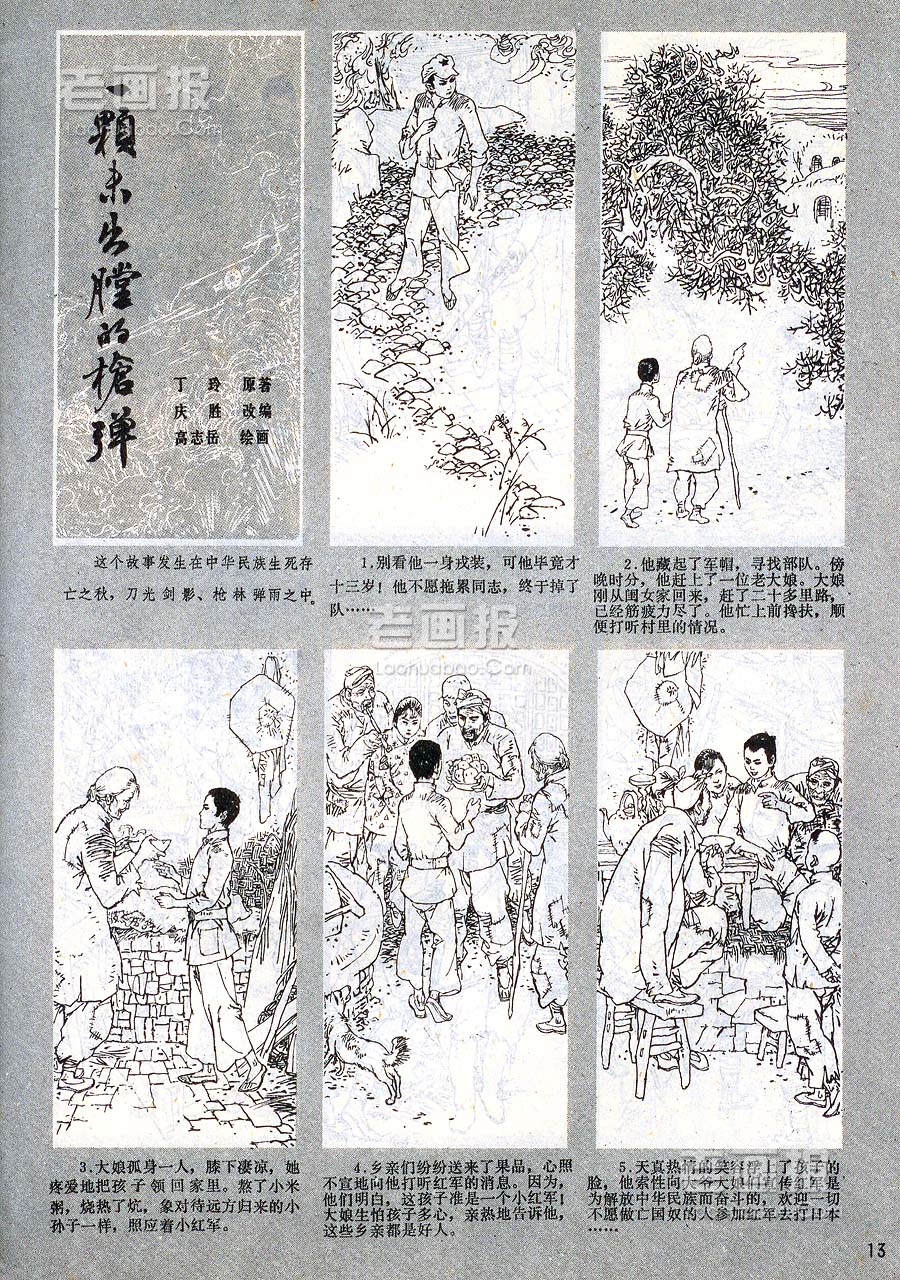 一顆未出膛的槍弹
丁玲 原著
庆胜 改编
高志岳 绘画
老画报
LaoHuaBao.Com
这个故事发生在中华民族生死存
亡之秋，刀光剑影、枪林弹雨之中。
1.别看他一身戎装，可他毕竟才
十三岁！他不愿拖累同志，终于掉了
队……
2.他藏起了军帽，寻找部队。傍
晚时分，他赶上了一位老大娘。大娘
刚从闺女家回来，赶了二十多里路，
已经筋疲力尽了。他忙上前搀扶，顺
便打听村里的情况。
老画报
LaoHuaBao.Com
3.大娘孤身一人，膝下凄凉，她
疼爱地把孩子领回家里。熬了小米
粥，烧热了炕，象对待远方归来的小
孙子一样，照应着小红军。
4.乡亲们纷纷送来了果品，心照
不宣地向他打听红军的消息。因为，
他们明白，这孩子准是一个小红军！
大娘生怕孩子多心，亲热地告诉他，
这些乡亲都是好人。
5.天真热情的笑容浮上了孩子的
脸，他索性向大爷大娘们宣传红军是
为解放中华民族而奋斗的，欢迎一切
不愿做亡国奴的人参加红军去打日本
……
13